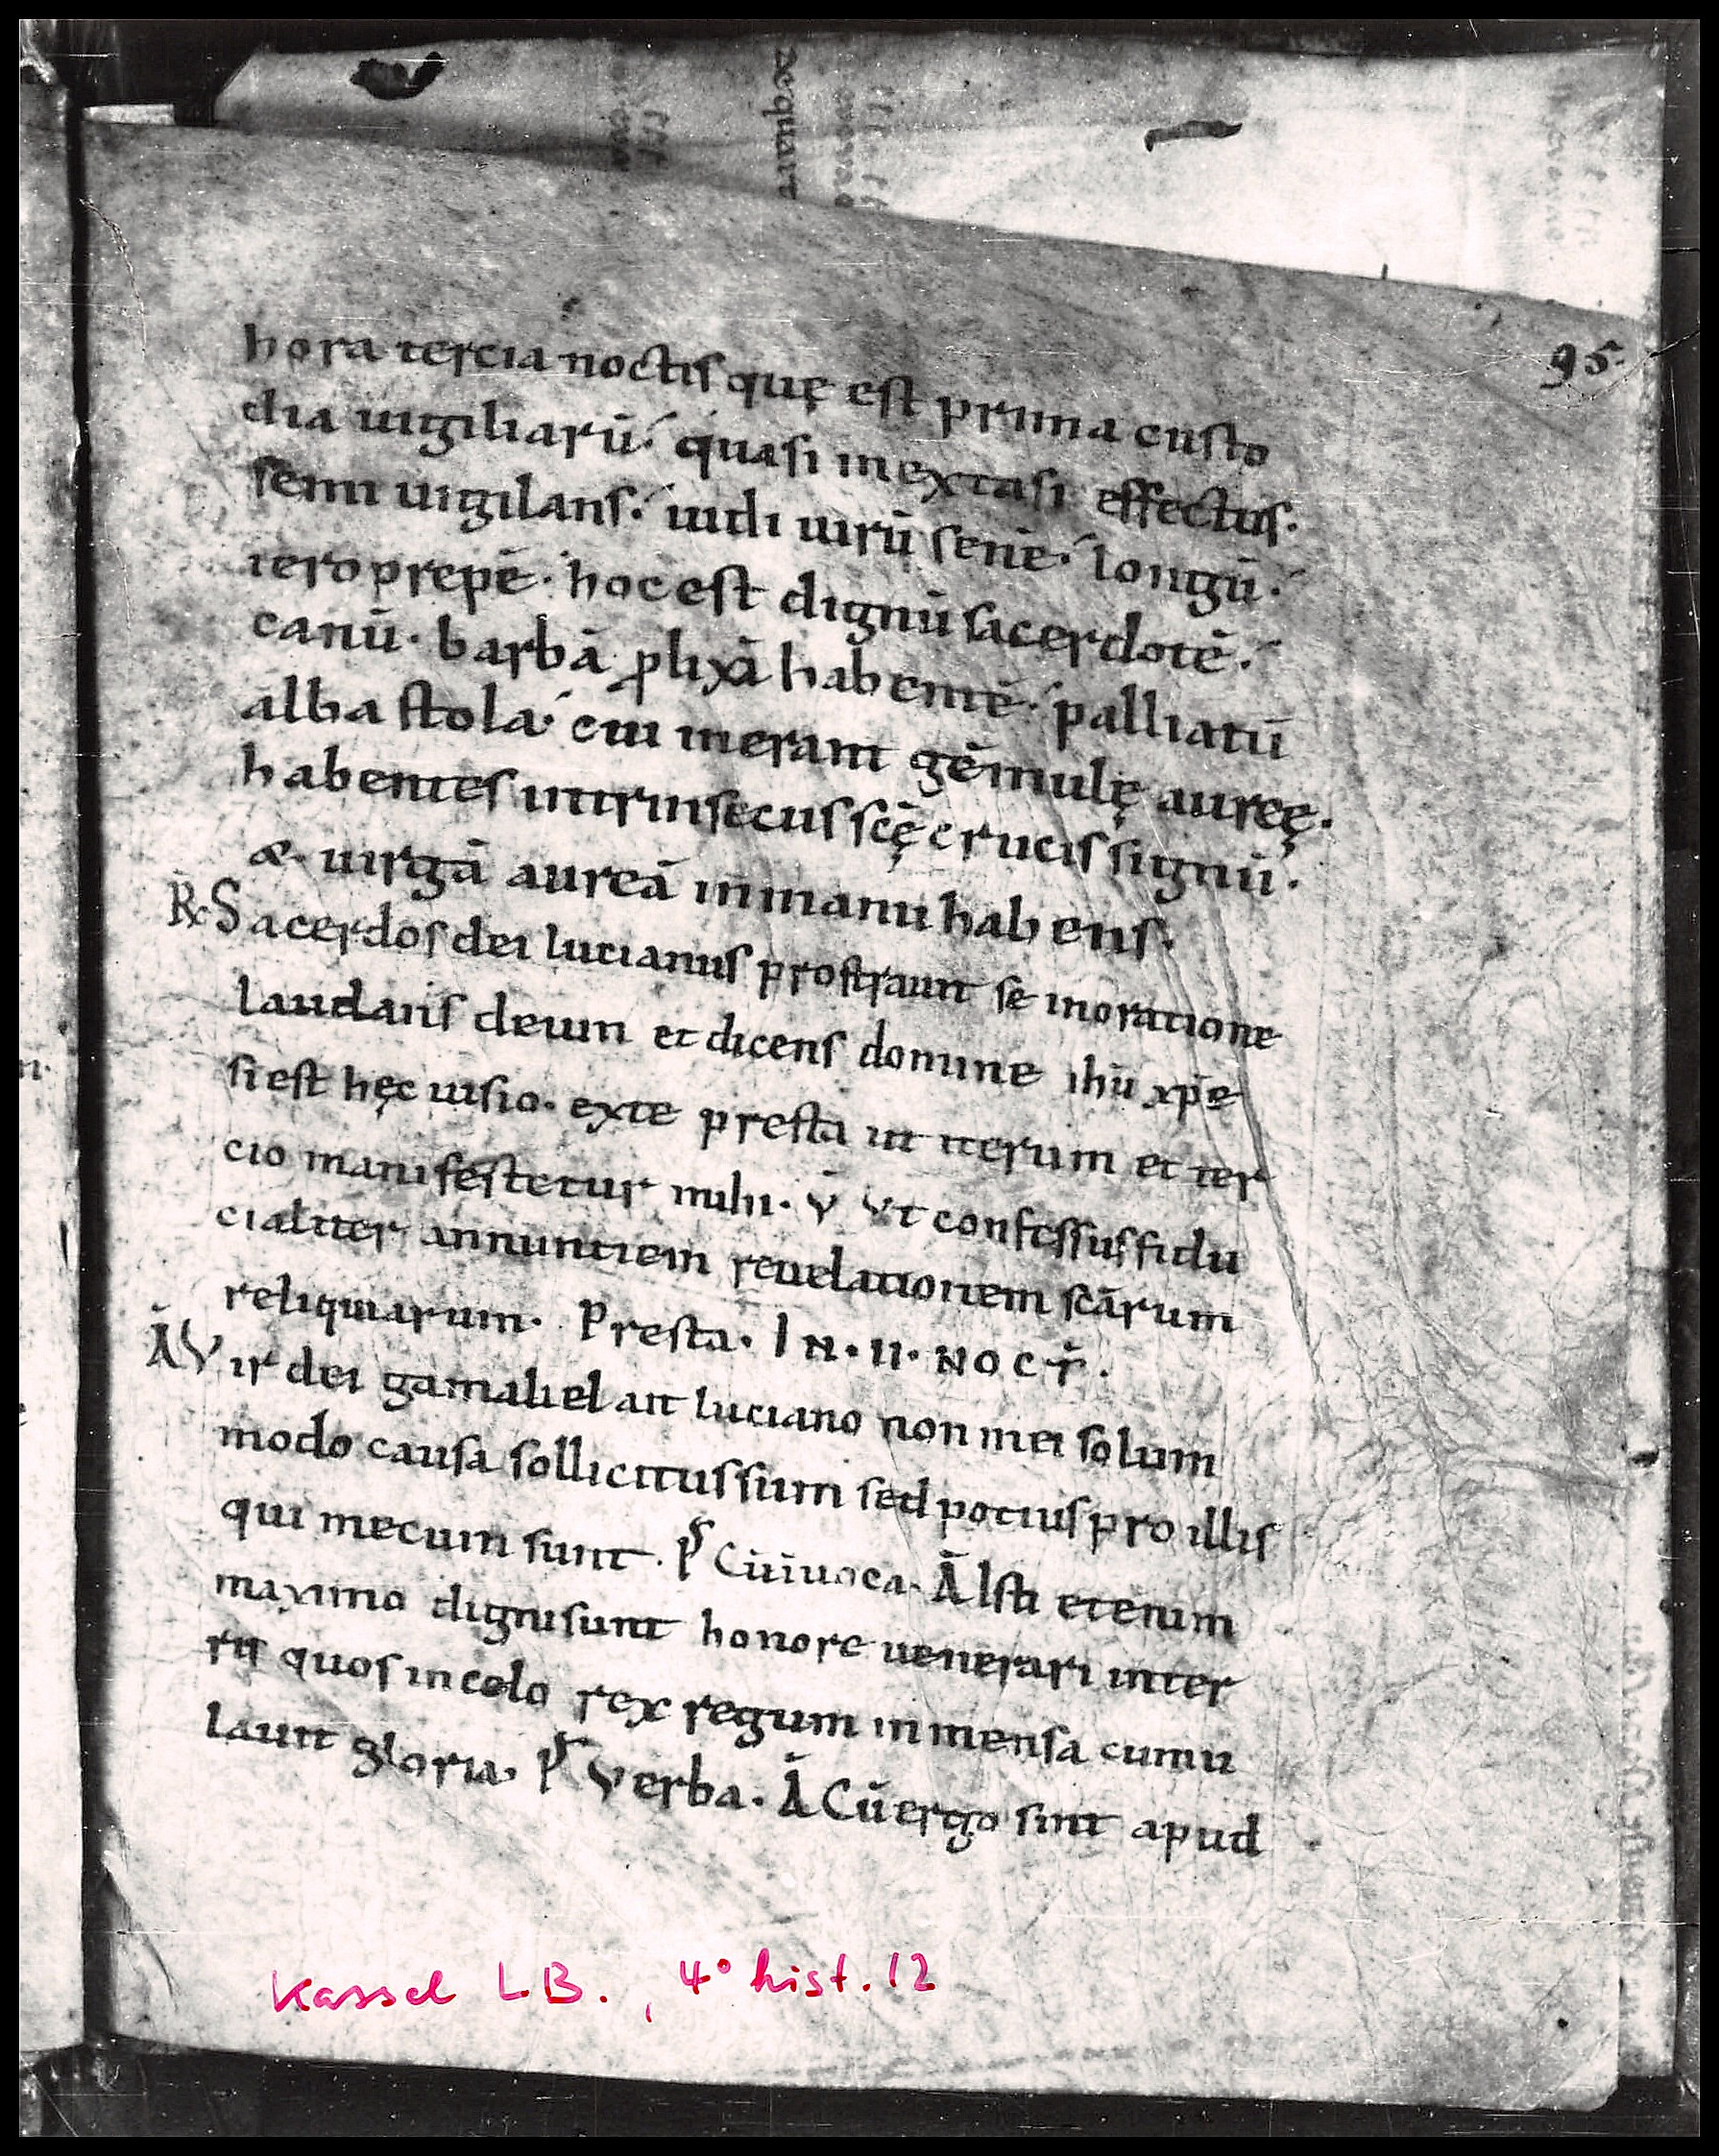 95.
hora tercia noctis quę est prima custo
dia uigiliarū. quasi in extasi effectus.
semi uigilans. uidi uirū senē. longū.
ieroprepē. hoc est dignū sacerdotē.
canū. barbā ꝓlixā habentē. palliatū
alba stola. cui inerant gēmulę aureę.
habentes intrinsecus scę̄ crucis signū.
&. uirgā aureā in manu habens.
R̷ Sacerdos dei lucianus prostrauit se in oratione
laudans deum et dicens domine ihū xpē
si est hęc uisio. ex te presta ut iterum et ter
cio manifestetur mihi. V̇ Vt confessus fidu
cialiter annuntiem reuelationem scārum
reliquiarum. Presta. IN. II. NOCT̄.
Ā Vir dei gamaliel ait luciano non mei solum
modo causa sollicitus sum sed potius pro illis
qui mecum sunt. Ps Cū inuoca. Ā Isti etenim
maximo digni sunt honore uenerari inter
ris quos in celo rex regum inmensa cumu
lauit gloria. Ps Verba. Ā Cū ergo sint apud
Kassel LB., 4° hist. 12